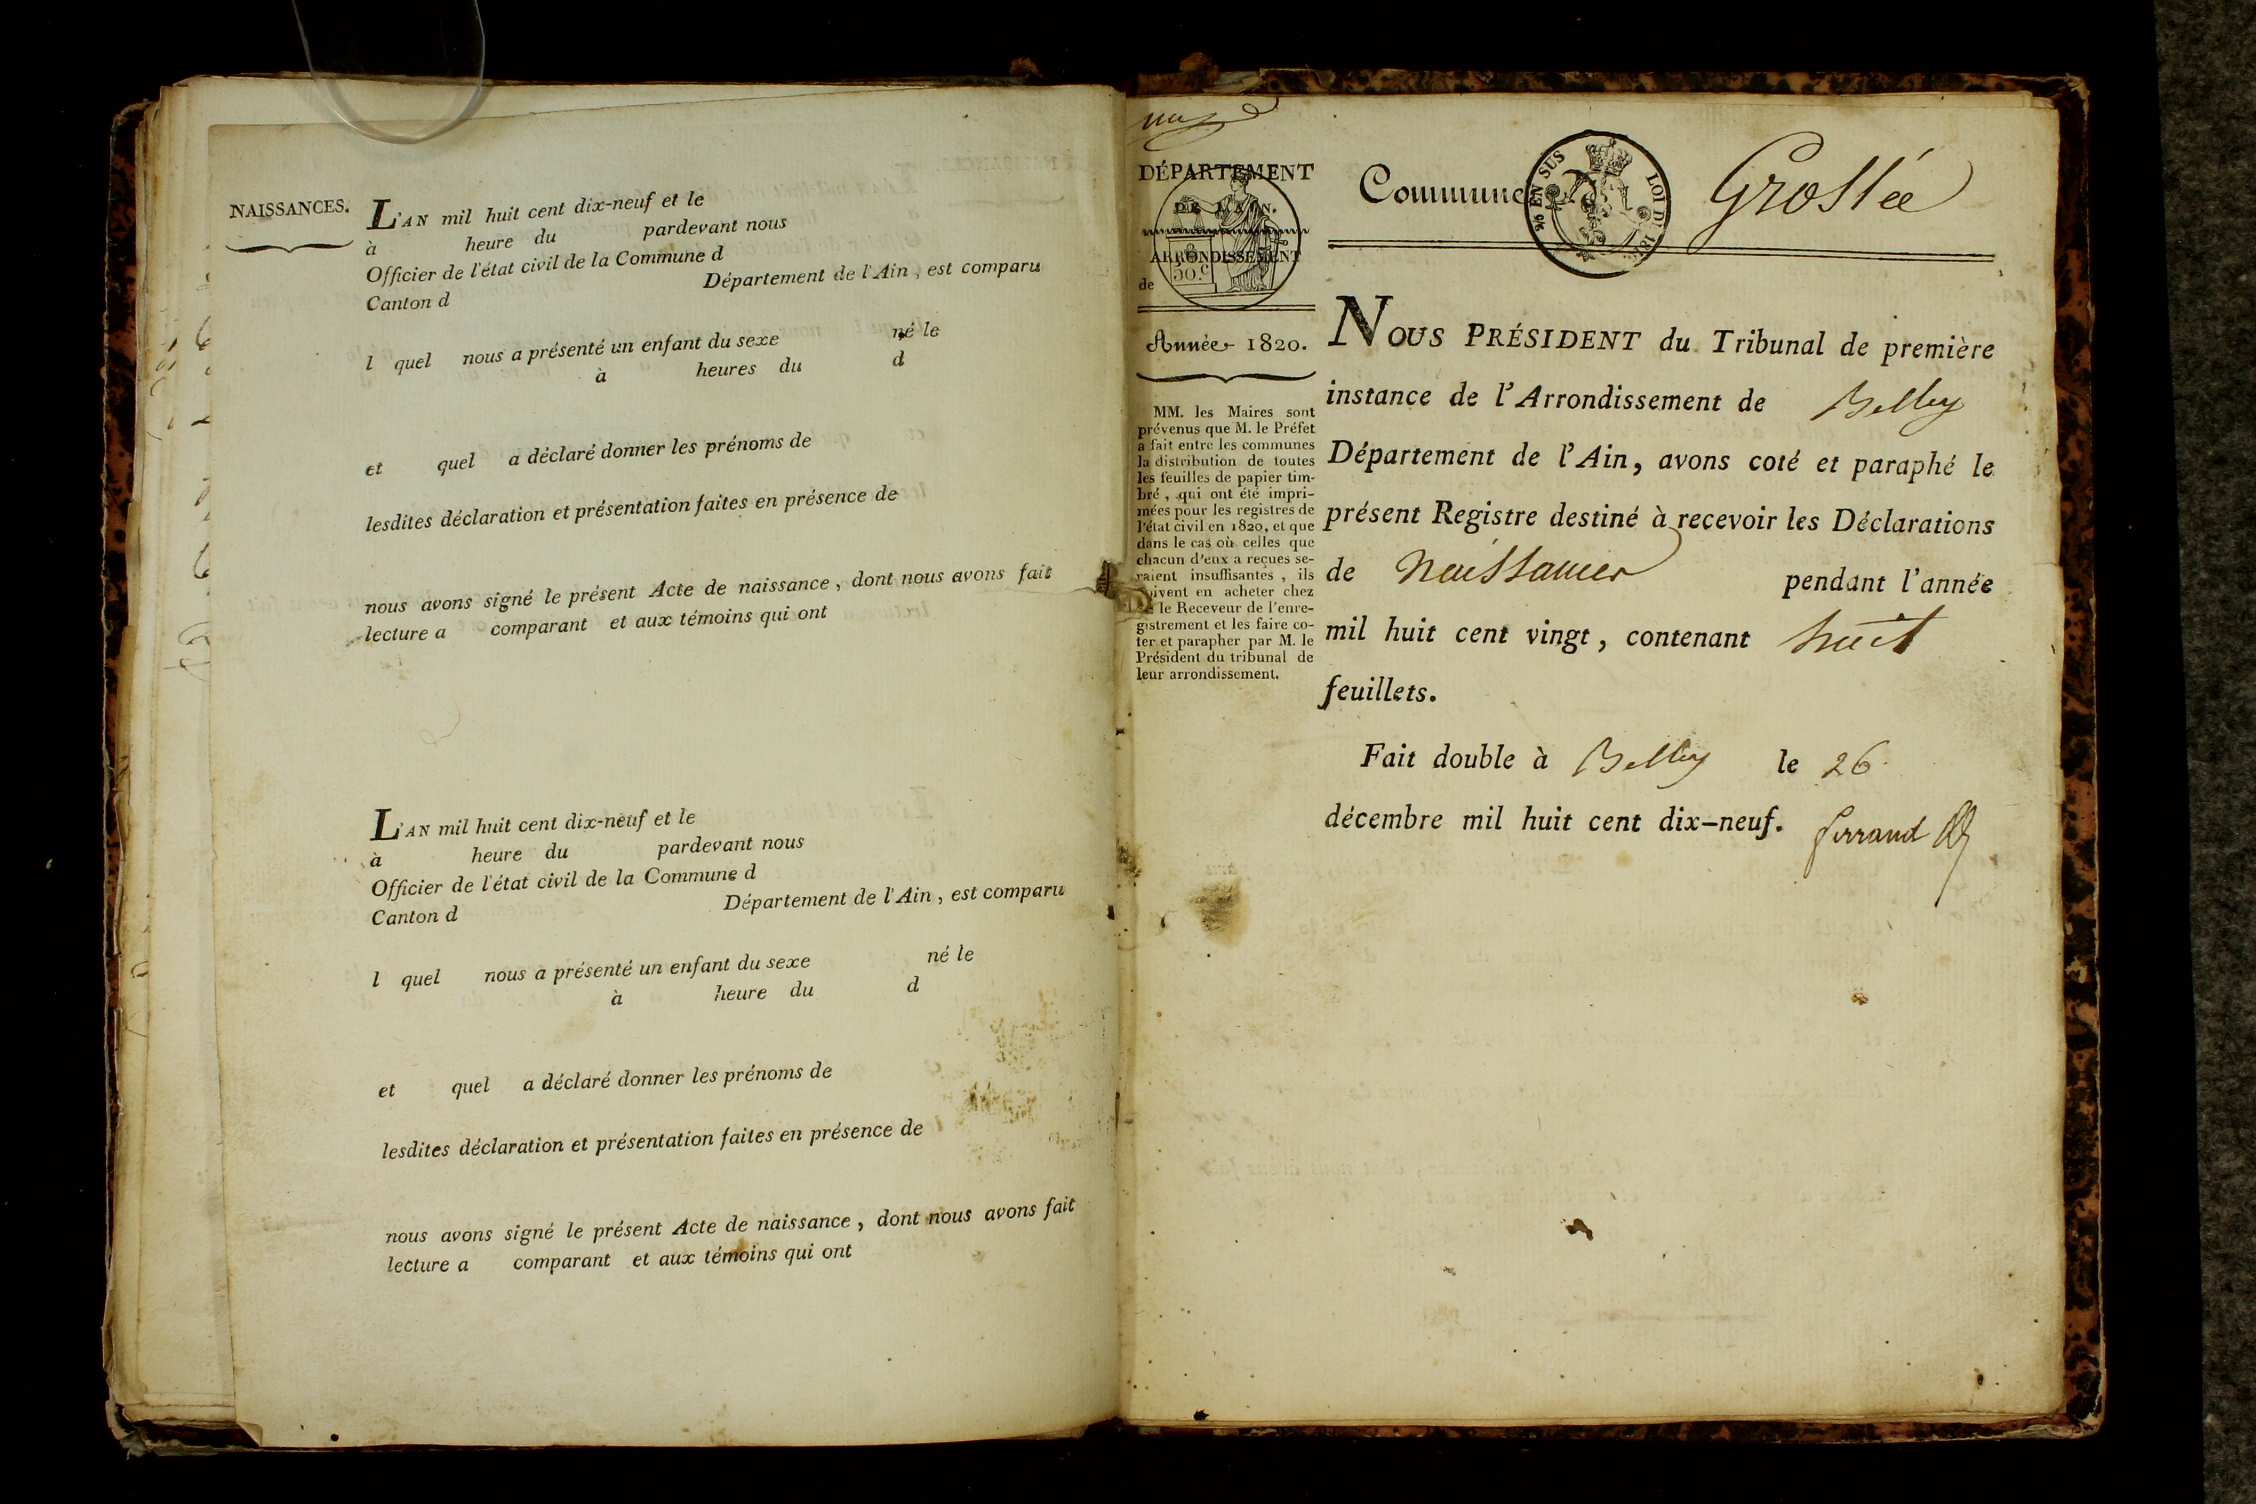 NAISSANCES.
L'AN mil huit cent dix-neuf et le
à heure du pardevant nous
Officier de l'état civil de la Commune d
Canton d Département de l'Ain, est comparu
l quel nous a présenté un enfant du sexe né le
à heures du d
et quel a déclaré donner les prénoms de
lesdites déclaration et présentation faites en présence de
nous avons signé le présent Acte de naissance, dont nous avons fait
lecture a comparant et aux témoins qui ont
L'AN mil huit cent dix-neuf et le
à heure du pardevant nous
Officier de l'état civil de la Commune d
Canton d Département de l'Ain, est comparu
l quel nous a présenté un enfant du sexe né le
à heure du d
et quel a déclaré donner les prénoms de
lesdites déclaration et présentation faites en présence de
nous avons signé le présent Acte de naissance, dont nous avons fait
lecture a comparant et aux témoins qui ont
DÉPARTEMENT
DE L'AIN.
ARRONDISSEMENT
50.c
de
Année 1820.
MM. les Maires sont
prévenus que M. le Préfet
a fait entre les communes
la distribution de toutes
les feuilles de papier tim-
bré, qui ont été impri-
mées pour les registres de
l'état civil en 1820, et que
dans le cas où celles que
chacun d'eux a reçues se-
raient insuffisantes, ils
doivent en acheter chez
le Receveur de l'enre-
gistrement et les faire co-
ter et parapher par M. le
Président du tribunal de
leur arrondissement.
Commune Groslée
EN SUS LOI DE 18
NOUS PRÉSIDENT du Tribunal de première
instance de l'Arrondissement de Belley
Département de l'Ain, avons coté et paraphé le
présent Registre destiné à recevoir les Déclarations
de Naissances pendant l'année
mil huit cent vingt, contenant huit
feuillets.
Fait double à Belley le 26
décembre mil huit cent dix-neuf. ferrand